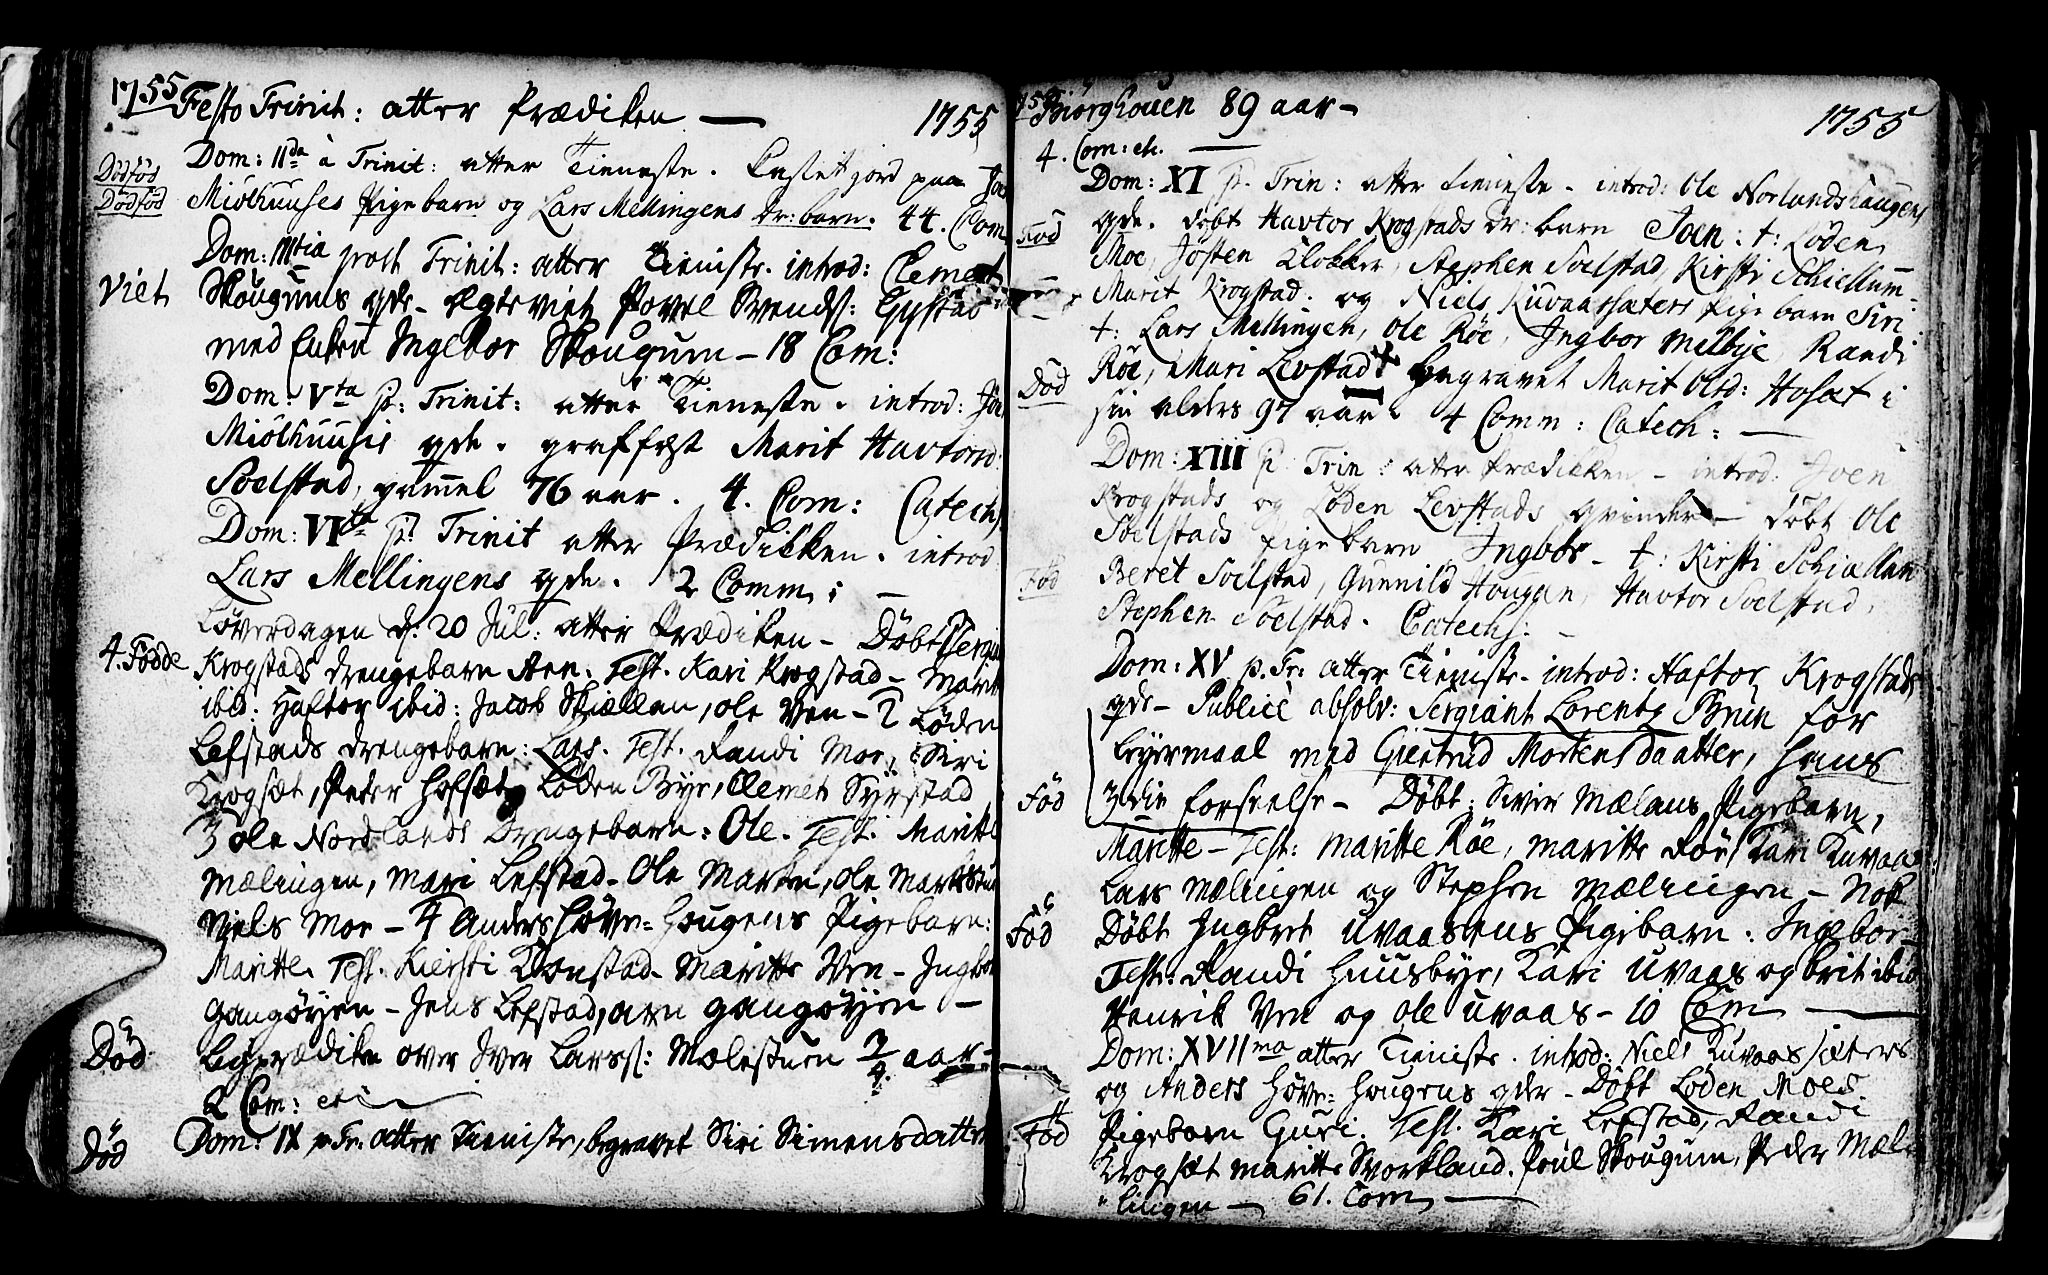 1755 Festo Trinit: atter Prædiken — 1755
Dom: IIda à Trinit: atter Tieneste. Castet jord paa Joe
Dødfød
Dødfød Miölhuuses Pigebarn og Lars Mellingens dr: barn. 44. Com
Dom: IIItia post Trinit: atter Tieniste. introd: Clemet
Viet Skougums qde. Ægteviet Povel Svends: Gystad
med Enken Ingebor Skougum — 18 Com:
Dom: Vta p: Trinit: atter Tieneste. introd: Joe
Miölhuusis qde. graffæst Marit Havtord:
Soelstad, gammel 76 aar. 4. Com: Catech:
Dom: VIta p: Trinit atter Prædikken. introd
Lars Mellingens qde. 2 Comm: —
Løverdagen d: 20 Jul: atter Prædiken — Døbt Sergia
4. Fødde Krogstads drengebarn Arn. Test. Kari Krogstad — Marit
ibid: Haftor ibid: Jacob Skiellan, Ole Ven — 2 Løden
Lefstads drengebarn: Lars. Test. Randi Moe, Siri
Krogsæt, Peder Hofsæt, Løden Bye, Clemet Syrstad
3 Ole Nordlands Drengebarn: Ole. Test: Maritte
Mælingen, Mari Lefstad. Ole Marken, Ole Markstuen
Niels Moe — 4 Anders Høve= Hougens Pigebarn:
Maritte. Test. Kiersti Klonstad. Maritte Ven — Ingbor
Gangøyen — Jens Lefstad, Arn Gangøyen —
Død Ligprædiken over Iver Larss: Mælistuen 3/4 aar —
2 Com: etc
Død Dom: IX p Tr: atter Tieniste, begravet Siri Simensdatter
Biörghouen 89 aar — 1755
4. Com: ch. —
Dom: XI p. Trin: atter tieneste. introd: Ole Norlundshaugens
Fød qde. døbt Havtor Krogstads dr: barn Joen: t: Løden
Moe, Jøsten Klokker, Stephen Soelstad, Kirsti Schiellum
Marit Krogstad. og Niels Kuvaassæters Pige barn Siri
t: Lars Mellingen, Ole Röe, Ingbor Melbye, Randi
Død Röe, Mari Levstad † begravet Marit Olsd: Hosæt i
sin alders 97 aar. 4 Comm: Catech: —
Dom: XIII p. Trin: atter Prædikken — introd: Joen
Krogstads og Løden Levstads qvinder — døbt Ole
Soelstads Pige barn Ingbor — t: Kirsti Schiellan
Fød Beret Soelstad, Gunnild Hougan, Havtor Soelstad,
Stephen Soelstad. Catech: —
Dom: XV p. Tr: atter Tieniste. introd: Haftor Krogstads
qde — Publicè absolv: Sergiant Lorentz Brun for
Leyermaal med Giertrud Mortensdaatter, hans
Fød 3die forseelse — Døbt: Siver Mælans Pigebarn,
Maritte — Test: Maritte Röe, Maritte Röe, Kari Kuvaas
Lars Mælingen og Stephen Mælingen — Nok
Fød Døbt Ingbret Uvaasens Pigebarn. Ingebor —
Test: Randi Huusbye, Kari Uvaas og Brit ibid
Henrik Ven og Ole Uvaas — 10 Com —
Dom: XVIIma atter Tieniste. introd: Niels Kuvaassæters
og Anders Høve= Hougens qder — Døbt Løden Moes
Fød Pigebarn Guri. Test. Kari Lefstad, Randi
Krogsæt Maritte Svorkland. Poul Skougum, Peder Mæl=
lingen — 61. Com —